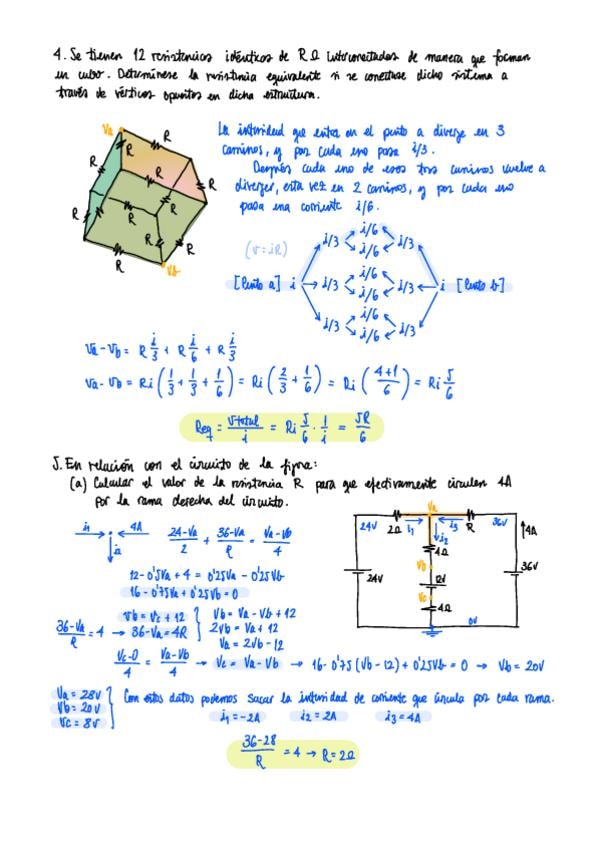 4. Se tienen 12 resistencias idénticas de R Ω interconectadas de manera que forman
un cubo. Determínese la resistencia equivalente si se conectase dicho sistema a
través de vértices opuestos en dicha estructura.
Va
R
R
R
R
R
R
R
R
R
R
R
R
Vb
La intensidad que entra en el punto a diverge en 3
caminos, y por cada uno pasa i/3.
Después cada uno de esos tres caminos vuelve a
diverger, esta vez en 2 caminos, y por cada uno
pasa una corriente i/6.
(V=iR)
i/3 i/6 i/6 i/3
[Punto a] i → i/3 i/6 i/6 i/3 ← i [Punto b]
i/3 i/6 i/6 i/3
Va-Vb = R i/3 + R i/6 + R i/3
Va-Vb = Ri (1/3 + 1/3 + 1/6) = Ri (2/3 + 1/6) = Ri (4+1/6) = Ri 5/6
Req = Vtotal/i = Ri 5/6 · 1/i = 5R/6
5. En relación con el circuito de la figura:
(a) Calcular el valor de la resistencia R para que efectivamente circulen 4A
por la rama derecha del circuito.
i1 → · ← 4A
↓ i2
24-Va/2 + 36-Va/R = Va-Vb/4
12-0'5Va+4 = 0'25Va - 0'25Vb
16-0'75Va+0'25Vb = 0
36-Va/R = 4 → 36-Va = 4R
Vb = Vc+12
Vb = Va-Vb+12
2Vb = Va+12
Va = 2Vb-12
Vc-0/4 = Va-Vb/4 → Vc = Va-Vb → 16-0'75(Vb-12)+0'25Vb = 0 → Vb = 20V
24V
2Ω
i1
Va
i3
R
36V
4A
i2
4Ω
Vb
24V
12V
36V
Vc
4Ω
0V
Va = 28V
Vb = 20V
Vc = 8V
Con estos datos podemos sacar la intensidad de corriente que circula por cada rama.
i1 = -2A i2 = 2A i3 = 4A
36-28/R = 4 → R = 2Ω